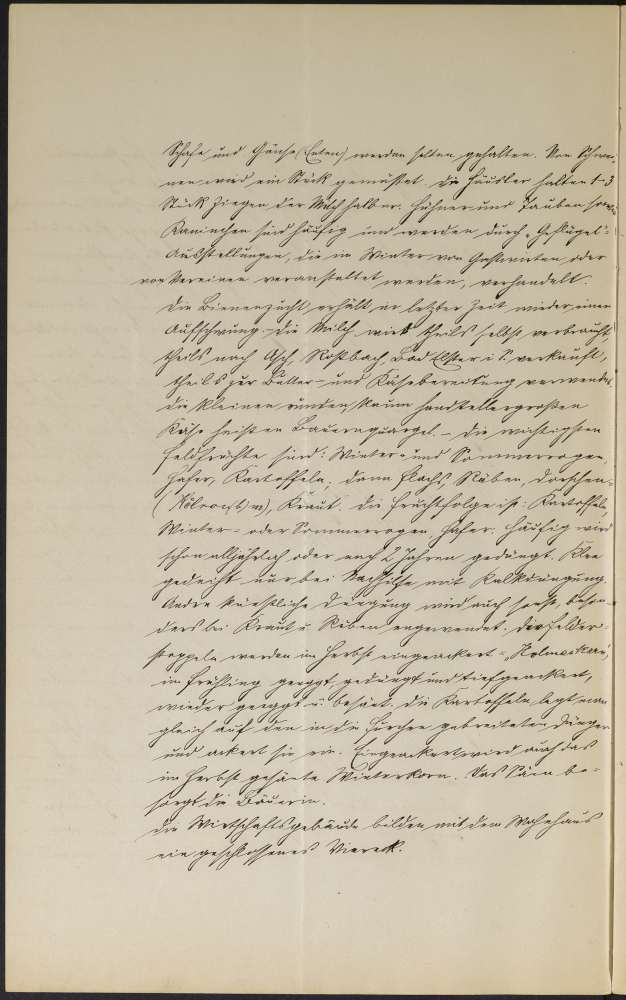 Schafe und Gänse (Enten) werden selten gehalten. Von Schwei-
nen wird ein Stück gemästet. Die Häusler halten 1-3
Stück Ziegen der Milch halber. Hühner und Tauben sowie
Kaninchen sind häufig und werden durch „Geflügel"-
Ausstellungen, die im Winter von Gastwirten oder
von Vereinen veranstaltet werden, verhandelt.
Die Bienenzucht erhält in letzter Zeit wieder einen
Aufschwung. Die Milch wird theils selbst verbraucht,
theils nach Asch, Roßbach, Bad Elster i. S. verkauft,
theils zur Butter- und Käsebereitung verwendet,
die kleinen, runden, kaum handtellergroßen
Käse heißen Bauernquargel. - Die wichtigsten
Feldfrüchte sind: Winter- und Sommerroggen,
Hafer, Kartoffeln; dann Flachs, Rüben, Dorschen
Kraut. Die Fruchtfolge ist: Kartoffeln,
Winter- oder Sommerroggen, Hafer. Häufig wird
schon alljährlich oder nach 2 Jahren gedüngt. Klee
gedeiht nur bei Nachhilfe mit Kalkdüngung.
Andre künstliche Düngung wird auch sonst, beson-
ders bei Kraut u. Rüben angewendet. Die Felder-
stoppeln werden im Herbst eingeackert =
im Frühling geeggt, gedüngt und tiefgeackert,
wieder geeggt u. besäet. Die Kartoffeln legt man
gleich auf den in die Furchen gebreiteten Dünger
und ackert sie ein. Eingeackert wird auch das
im Herbst gesäete Winterkorn. Das Säen be-
sorgt die Bäuerin.
Die Wirtschaftsgebäude bilden mit dem Wohnhaus
ein geschlossenes Viereck.